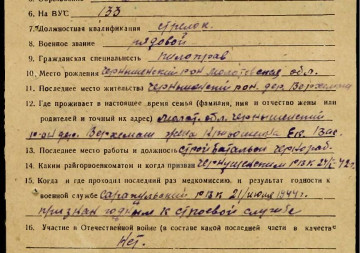 6. На ВУС 133
7. Должностная квалификация стрелок
8. Военное звание рядовой
9. Гражданская специальность пилоправ
10. Место рождения Чернушинский р-он Молотовская обл.
11. Последнее место жительства Чернушинский р-он. дер.
12. Где проживает в настоящее время семья (фамилия, имя и отчество жены или
родителей и точный их адрес) Молот. обл. Чернушинский
р-он дер. жена Евд. Вас.
13. Последнее место работы и должность строй батальон
14. Каким райгорвоенкоматом и когда призван Чернушинским РВК 42 г.
15. Когда и где проходил последний раз медкомиссию, и результат годности к
военной службе Сарапульский РВК 21/июля 1944 г.
признан годным к строевой службе
16. Участие в Отечественной войне (в составе какой последней части в качестве
Нет.